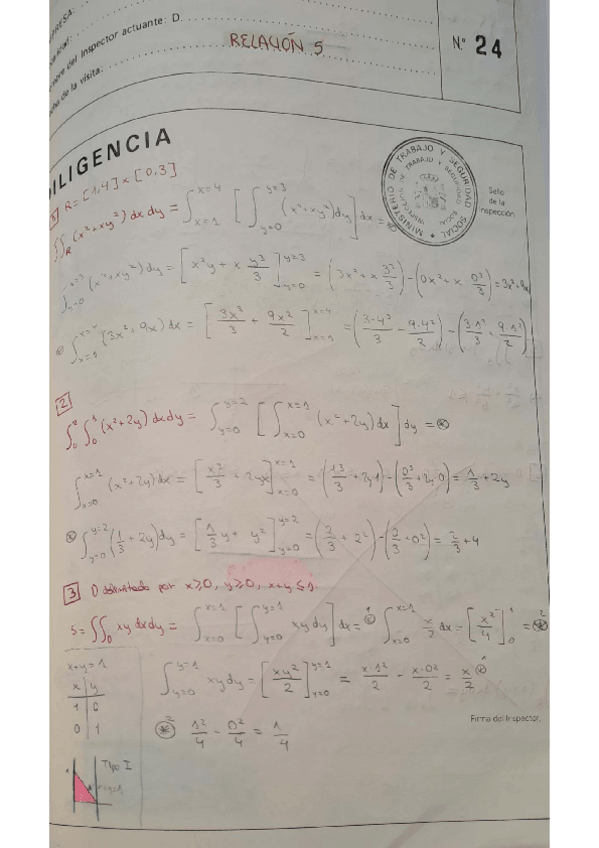 del Inspector actuante: D.
de la visita:
RELACIÓN 5
N.º 24
DILIGENCIA
MINISTERIO DE TRABAJO Y SEGURIDAD SOCIAL
Sello de la inspección
R = [1,4] x [0,3]
∬_R (x²+xy²) dx dy = ∫_{x=1}^{x=4} [ ∫_{y=0}^{y=3} (x²+xy²) dy ] dx =
(x²+xy²) dy = [ x²y + x y³/3 ]_{y=0}^{y=3} = (3x² + x 3³/3) - (0x² + x 0³/3) = 3x²+9x
∫_{x=1} (3x²+9x) dx = [ 3x³/3 + 9x²/2 ]_{x=1}^{x=4} = (3·4³/3 - 9·4²/2) - (3·1³/3 - 9·1²/2)
2
∫_0^2 ∫_0^1 (x²+2y) dx dy = ∫_{y=0}^{y=2} [ ∫_{x=0}^{x=1} (x²+2y) dx ] dy = ⊛
∫_{x=0}^{x=1} (x²+2y) dx = [ x³/3 + 2yx ]_{x=0}^{x=1} = (1³/3 + 2y1) - (0³/3 + 2y·0) = 1/3 + 2y
⊛ ∫_{y=0}^{y=2} (1/3 + 2y) dy = [ 1/3 y + y² ]_{y=0}^{y=2} = (2/3 + 2²) - (0/3 + 0²) = 2/3 + 4
3 D delimitado por x≥0, y≥0, x+y≤1.
S = ∬_D xy dx dy = ∫_{x=0}^{x=1} [ ∫_{y=0}^{y=1} xy dy ] dx = ⊛¹ ∫_{x=0}^{x=1} x/2 dx = [ x²/4 ]_0^1 = ⊛²
x+y=1
x | y
1 | 0
0 | 1
∫_{y=0}^{y=1} xy dy = [ xy²/2 ]_{y=0}^{y=1} = x·1²/2 - x·0²/2 = x/2 ⊛¹
⊛² 1²/4 - 0²/4 = 1/4
Firma del Inspector,
Tipo I